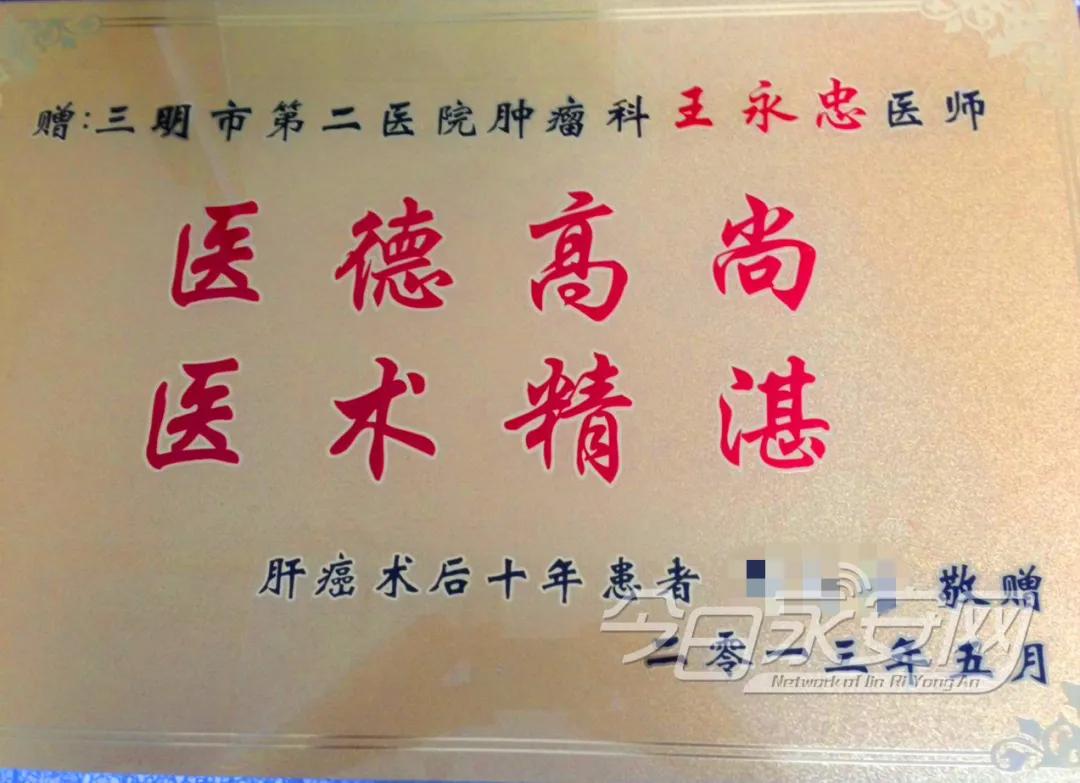 赠:三明市第二医院肿瘤科王永忠医师
医德高尚
医术精湛
肝癌术后十年患者 敬赠
二零一三年五月
今日永安网
Network of Jin Ri Yong An